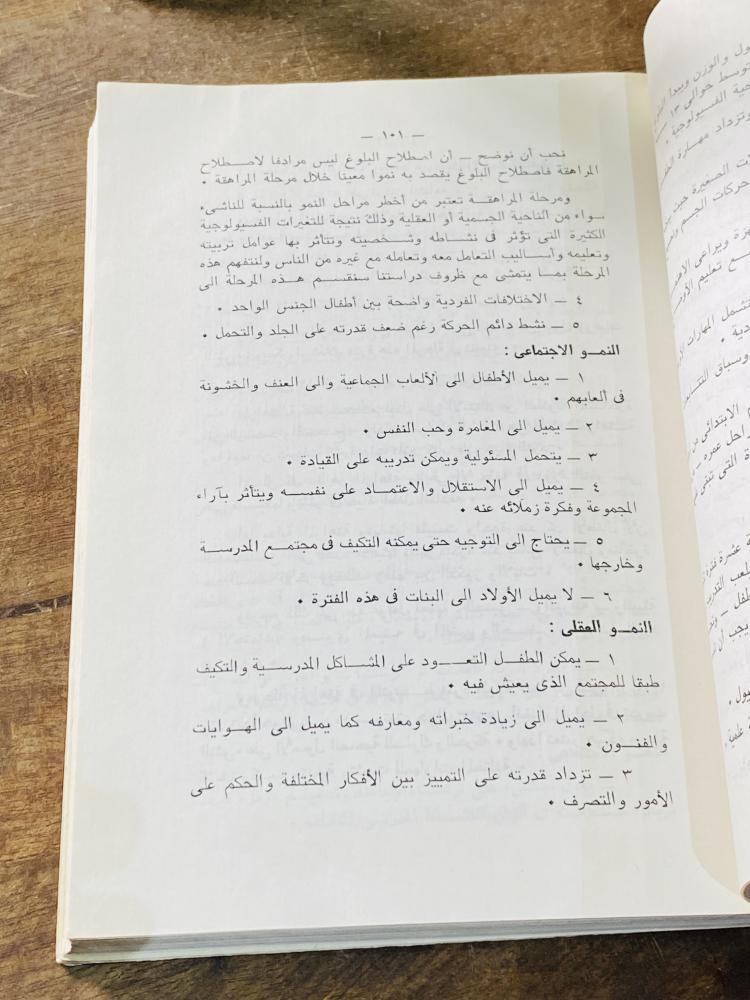 — ١٠١ —
نحب أن نوضح — أن اصطلاح البلوغ ليس مرادفا لاصطلاح
المراهقة فاصطلاح البلوغ يقصد به نموا معينا خلال مرحلة المراهقة .
ومرحلة المراهقة تعتبر من أخطر مراحل النمو بالنسبة للناشىء
سواء من الناحية الجسمية أو العقلية وذلك نتيجة للتغيرات الفسيولوجية
الكثيرة التى تؤثر فى نشاطه وشخصيته وتتأثر بها عوامل تربيته
وتعليمه وأساليب التعامل معه وتعامله مع غيره من الناس ولنتفهم هذه
المرحلة بما يتمشى مع ظروف دراستنا سنقسم هذه المرحلة الى
٤ — الاختلافات الفردية واضحة بين أطفال الجنس الواحد .
٥ — نشط دائم الحركة رغم ضعف قدرته على الجلد والتحمل .
النمو الاجتماعى :
١ — يميل الأطفال الى الألعاب الجماعية والى العنف والخشونة
فى ألعابهم .
٢ — يميل الى المغامرة وحب النفس .
٣ — يتحمل المسئولية ويمكن تدريبه على القيادة .
٤ — يميل الى الاستقلال والاعتماد على نفسه ويتأثر بآراء
المجموعة وفكرة زملائه عنه .
٥ — يحتاج الى التوجيه حتى يمكنه التكيف فى مجتمع المدرسة
وخارجها .
٦ — لا يميل الأولاد الى البنات فى هذه الفترة .
النمو العقلى :
١ — يمكن الطفل التعود على المشاكل المدرسية والتكيف
طبقا للمجتمع الذى يعيش فيه .
٢ — يميل الى زيادة خبراته ومعارفه كما يميل الى الهوايات
والفنون .
٣ — تزداد قدرته على التمييز بين الأفكار المختلفة والحكم على
الأمور والتصرف .
والوزن ويبدأ
حوالى ١٣
الفسيولوجية .
وتزداد مهارة
الصغيرة حيث
حركات الجسم
ويراعى
مع تعليم
المهارات
وسباق
الابتدائى
مراحل عمره
التى
عشرة